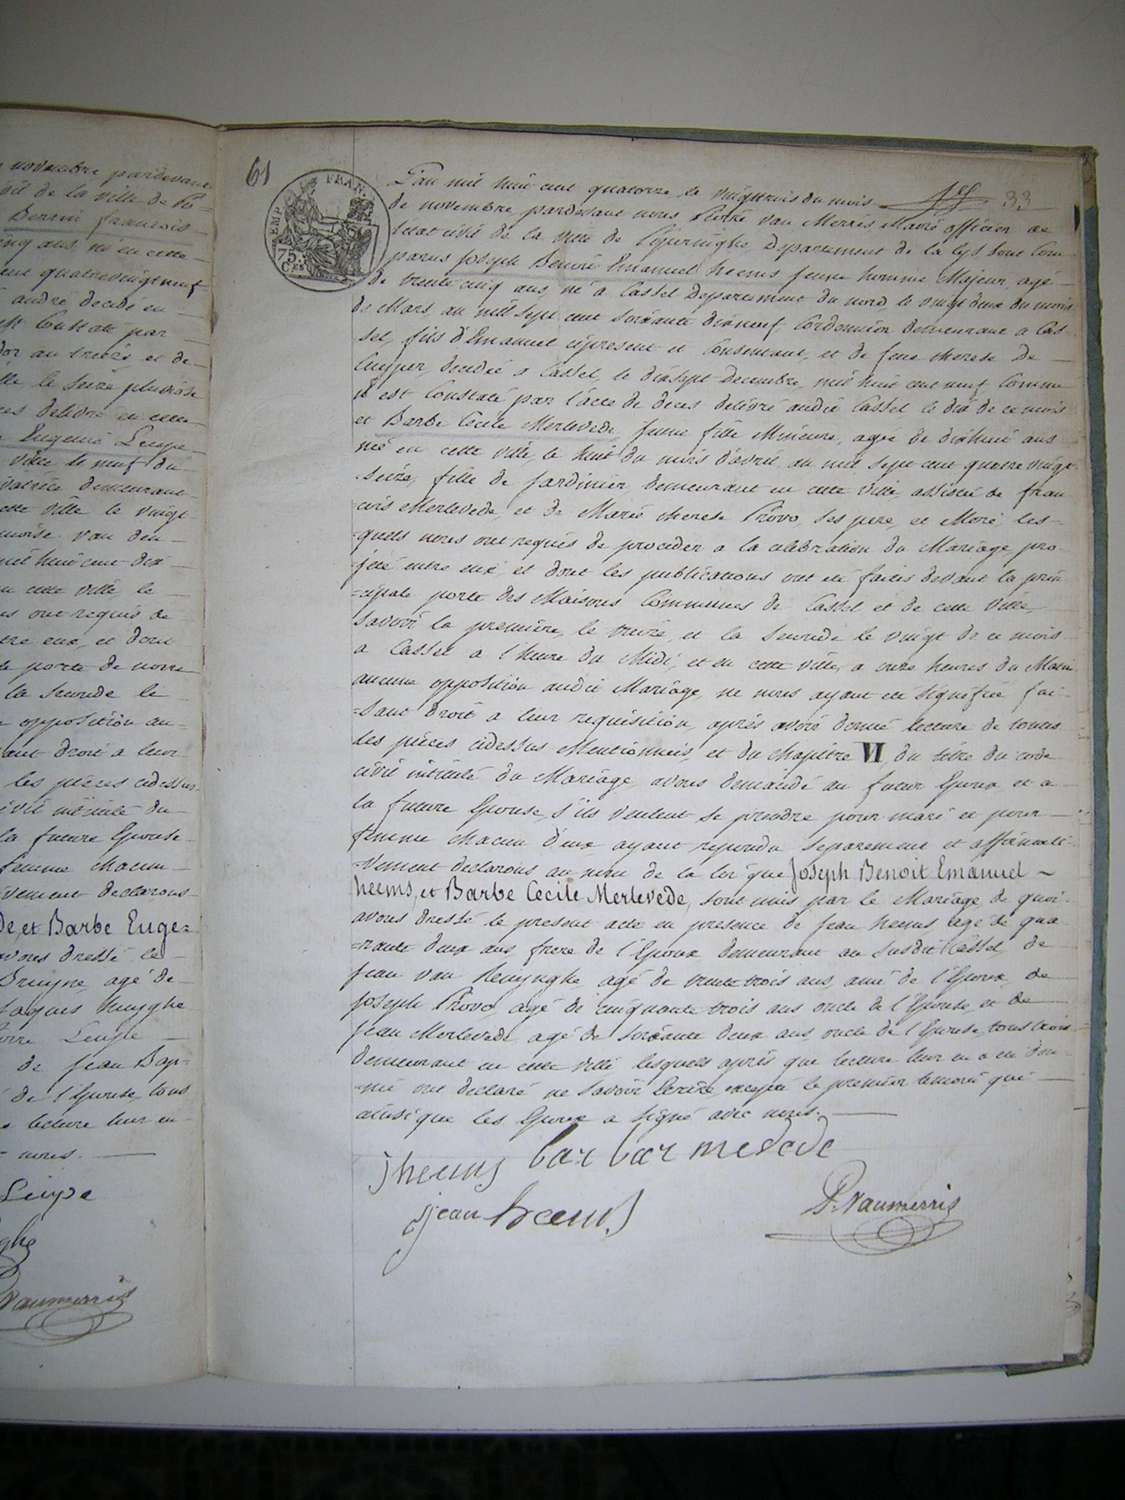 novembre pardevant
de la ville de Po-
Benoit francois
cinq ans né en cette
cent quatrevingt neuf
andré decedé en
Constaté par
et de-
le Seize pluviose
delivré en cette
Eugenie Leupe
ville le neuf du
demeurant
cette ville le vingt
van den
mil huit cent dix
en cette ville le
ont requis de
entre eux, et dont
porte de notre
la seconde le
opposition au-
sant droit a leur
les pièces cidessus
civil intitulé du
la future Epouse
femme chacun
vement declarons
de, et Barbe Euge=
avons dressé le
Druyne, agé de
Jaques
Leupe
de Jean Bap-
de l'Epouse, tous
lecture leur en
nous.
Leupe
ghe
Vanmerris
61
EMP. FRAN.
75
CES
33
L'an mil huit cent quatorze le vingttrois du mois
de novembre pardevant nous Pierre van Merris Maire officier de
l'etat civil de la ville de Poperinghe, Departement de la Lys sont Com-
parus Joseph Benoit Emanuel heems jeune homme Majeur, agé
de trente cinq ans, né a Cassel Departement du nord, le vingt deux du mois
de Mars, an mil sept cent soixante dixneuf Cordonnier demeurant a Cas-
sel, fils d'Emanuel cipresent et Consentant, et de feue therese De
Cuyper, decedée a Cassel, le dixsept decembre, mil huit cent neuf Comme
il est Constaté par l'acte de deces delivré audit Cassel le dix de ce mois
et Barbe Cecile Merlevede, jeune fille Mineure, agée de dixhuit ans
née en cette ville, le huit du mois d'avril an mil sept cent quatre vingt
-Seize, fille de jardinier, demeurant en cette ville, assistée de fran-
cois Merlevede, et de Marie therese Provo, Ses pere, et Mere les-
-quels nous ont requis de proceder a la celebration du Mariage pro-
-jeté entre eux, et dont les publications ont eté faites devant la prin-
-cipale porte des Maisons Communes de Cassel et de cette ville
Savoir la premiere, le treize, et la seconde le vingt de ce mois
a Cassel a l'heure du Midi, et en cette ville, a onze heures du Matin
aucune opposition audit Mariage, ne nous ayant eté signifiée fai-
-sant droit a leur requisition, après avoir donné lecture de toutes
les pièces cidessus Mentionnées, et du chapitre VI du titre du code
civil intitulé du Mariage avons demandé au futur Epoux et a
la future Epouse, s'ils veulent se prendre pour mari et pour
femme chacun d'eux ayant repondu separement et affirmati-
-vement declarons au nom de la loi que Joseph Benoit Emanuel
heems, et Barbe Cecile Merlevede, sont unis par le Mariage de quoi
avons dressé le present acte en presence de Jean heems agé de qua-
-rante deux ans, frere de l'Epoux demeurant au susdit Cassel, de
Jean van agé de trente trois ans, ami de l'Epoux de
Joseph Provo, agé de cinquante trois ans oncle de l'Epouse, et de
Jean Merlevede, agé de soixante deux ans, oncle de l'Epouse, tous trois
demeurant en cette ville lesquels après que lecture leur en a eté don-
-né ont declaré ne savoir ecrire, excepté le premier temoin qui
ainsi que les Epoux a signé avec nous.
jheems barbar mesede
jean heems
P. Vanmerris